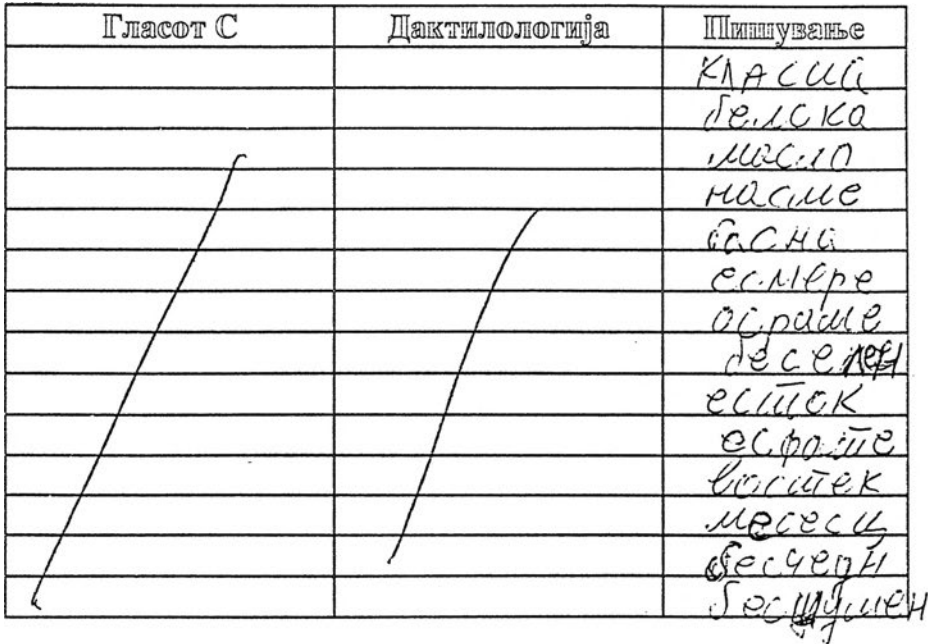 Гласот С Дактилологија Пишување
класий
белска
масло
насме
басна
есмере
осраме
беселен
есток
есфате
востек
месец
бесчетн
бесшумен